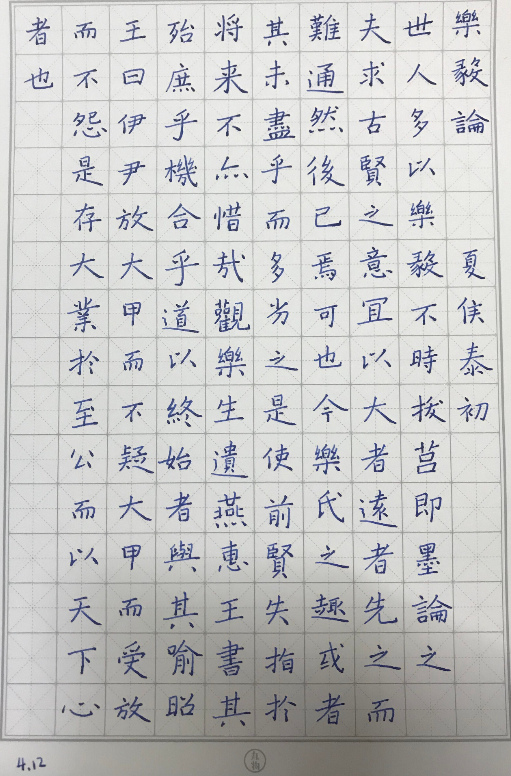 樂毅論 夏侯泰初
世人多以樂毅不時拔莒即墨論之
夫求古賢之意冝以大者遠者先之而
難通然後已焉可也今樂氏之趣或者
其未盡乎而多劣之是使前賢失指於
将来不亦惜哉觀樂生遺燕惠王書其
殆庶乎機合乎道以終始者與其喻昭
王曰伊尹放大甲而不疑大甲而受放
而不怨是存大業於至公而以天下心
者也
4.12